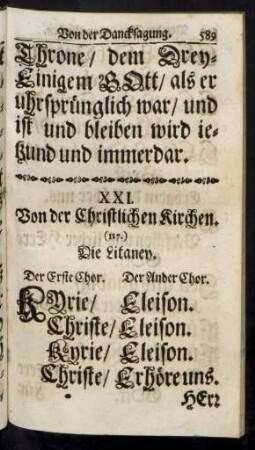 Von der Dancksagung. 589
Throne/ dem Drey-
Einigem GOtt/ als er
uhrsprünglich war/ und
ist und bleiben wird ie-
tzund und immerdar.
XXI.
Von der Christlichen Kirchen.
(117.)
Die Litaney.
Der Erste Chor. Der Ander Chor.
KYrie/ Eleison.
Christe/ Eleison.
Kyrie/ Eleison.
Christe/ Erhöre uns.
HErr